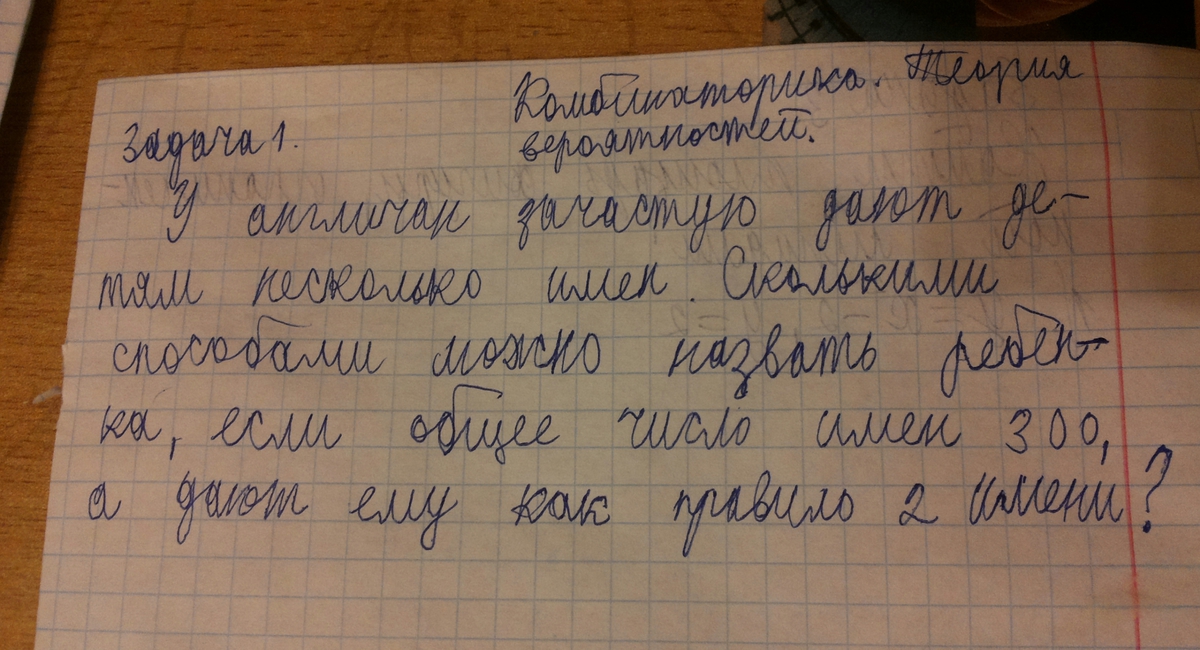 Комбинаторика. Теория
вероятностей.
Задача 1.
У англичан зачастую дают де-
тям несколько имен. Сколькими
способами можно назвать ребен-
ка, если общее число имен 300,
а дают ему как правило 2 имени?